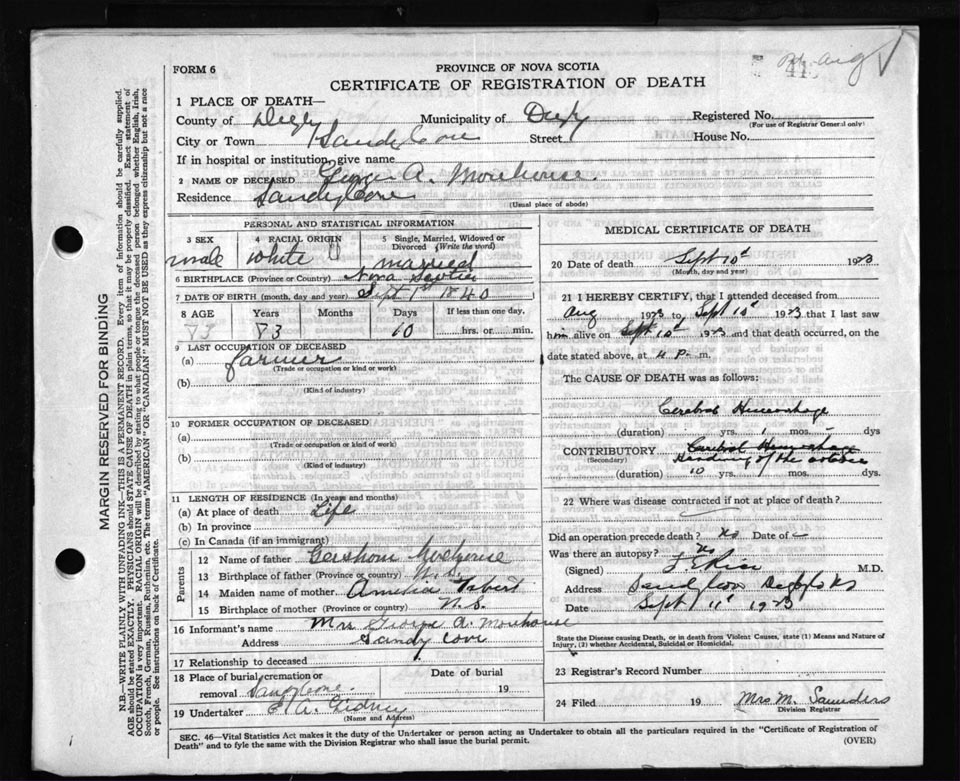 FORM 6
PROVINCE OF NOVA SCOTIA
CERTIFICATE OF REGISTRATION OF DEATH
41
1 PLACE OF DEATH—
County of Digby Municipality of Digby Registered No.
(For use of Registrar General only)
City or Town Sandy Cove Street House No.
If in hospital or institution, give name
2 NAME OF DECEASED George A. Morehouse.
Residence Sandy Cove
(Usual place of abode)
PERSONAL AND STATISTICAL INFORMATION
3 SEX 4 RACIAL ORIGIN 5 Single, Married, Widowed or Divorced (Write the word)
male White married
6 BIRTHPLACE (Province or Country) Nova Scotia
7 DATE OF BIRTH (month, day and year) Sept 1st 1840
8 AGE Years Months Days If less than one day,
83 83 10 hrs. or min.
9 LAST OCCUPATION OF DECEASED
(a) farmer
(Trade or occupation or kind or work)
(b)
(Kind of industry)
10 FORMER OCCUPATION OF DECEASED
(a)
(Trade or occupation or kind of work)
(b)
(Kind of industry)
11 LENGTH OF RESIDENCE (In years and months)
(a) At place of death Life
(b) In province
(c) In Canada (if an immigrant)
Parents
12 Name of father Gershom Morehouse
13 Birthplace of father (Province or country) N.S.
14 Maiden name of mother Amelia
15 Birthplace of mother (Province or country) N.S.
16 Informant's name Mrs George A. Morehouse
Address Sandy Cove
17 Relationship to deceased
18 Place of burial, cremation or removal Sandy Cove. Date of burial 19
19 Undertaker E. A. Gidney
(Name and Address)
MEDICAL CERTIFICATE OF DEATH
20 Date of death Sept 10th 1923
(Month, day and year)
21 I HEREBY CERTIFY, that I attended deceased from
Aug 1923 to Sept 10th 1923 that I last saw
him alive on Sept 10th 1923 and that death occurred, on
date stated above, at 4 P. m.
The CAUSE OF DEATH was as follows:
Cerebral Hemorrhage
(duration) yrs. 1 mos. dys
CONTRIBUTORY Cerebral Hemorrhage
(Secondary) Hardning of the arteries
(duration) 10 yrs. mos. dys.
22 Where was disease contracted if not at place of death?
Did an operation precede death? No Date of
Was there an autopsy? No
(Signed) M.D.
Address Sandy Cove Digby Co NS
Date Sept 11th 1923
State the Disease causing Death, or in death from Violent Causes, state (1) Means and Nature of
Injury, (2) whether Accidental, Suicidal or Homicidal.
23 Registrar's Record Number
24 Filed 19 Mrs M. Saunders
Division Registrar
SEC. 46—Vital Statistics Act makes it the duty of the Undertaker or person acting as Undertaker to obtain all the particulars required in the "Certificate of Registration of
Death" and to fyle the same with the Division Registrar who shall issue the burial permit.
(OVER)
MARGIN RESERVED FOR BINDING
N.B.—WRITE PLAINLY WITH UNFADING INK—THIS IS A PERMANENT RECORD. Every item of information should be carefully supplied.
AGE should be stated EXACTLY. PHYSICIANS should STATE CAUSE OF DEATH in plain terms, so that it may be properly classified. Exact statement of
OCCUPATION is very important. RACIAL ORIGIN will be described by stating to what people or tongue the deceased person belonged whether English, Irish,
Scotch, French, German, Russian, Ruthenian, etc. The terms "AMERICAN" or "CANADIAN" MUST NOT BE USED as they express citizenship but not a race
or people. See instructions on back of Certificate.